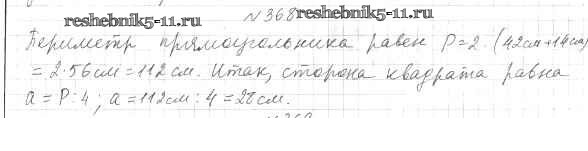 reshebnik5-11.ru №368 reshebnik5-11.ru
Периметр прямоугольника равен P=2·(42см+14см)
=2·56см=112см. Итак, сторона квадрата равна
a=P:4; a=112см:4=28см.